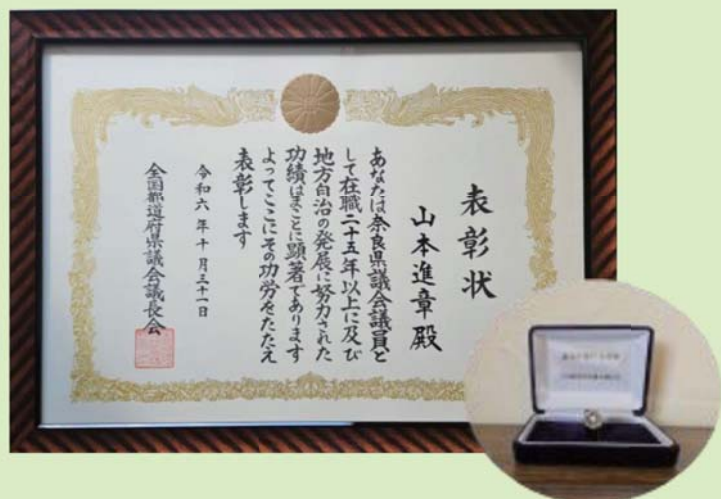 表彰状
山本進章殿
あなたは奈良県議会議員と
して在職二十五年以上に及び
地方自治の発展に努力された
功績はまことに顕著であります
よってここにその功労をたたえ
表彰します
令和六年十月三十一日
全国都道府県議会議長会